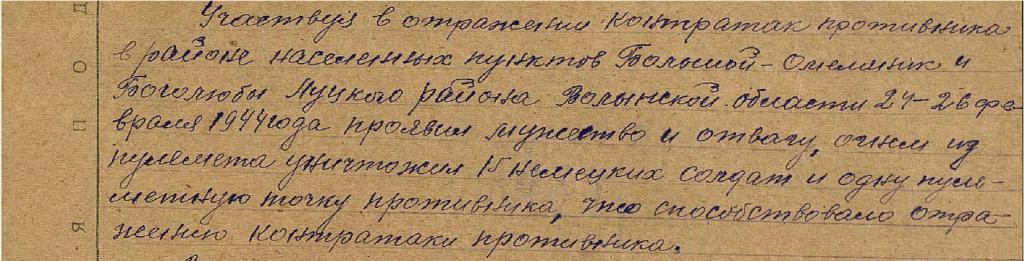 Участвуя в отражении контратак противника
в районе населенных пунктов Большой-Омелиник и
Боголюбы Луцкого района Волынской области 24-26 фе-
враля 1944 года проявил мужество и отвагу, огнем из
пулемета уничтожил 15 немецких солдат и одну пуле-
метную точку противника, что способствовало отра-
жению контратаки противника.
Я П О Д